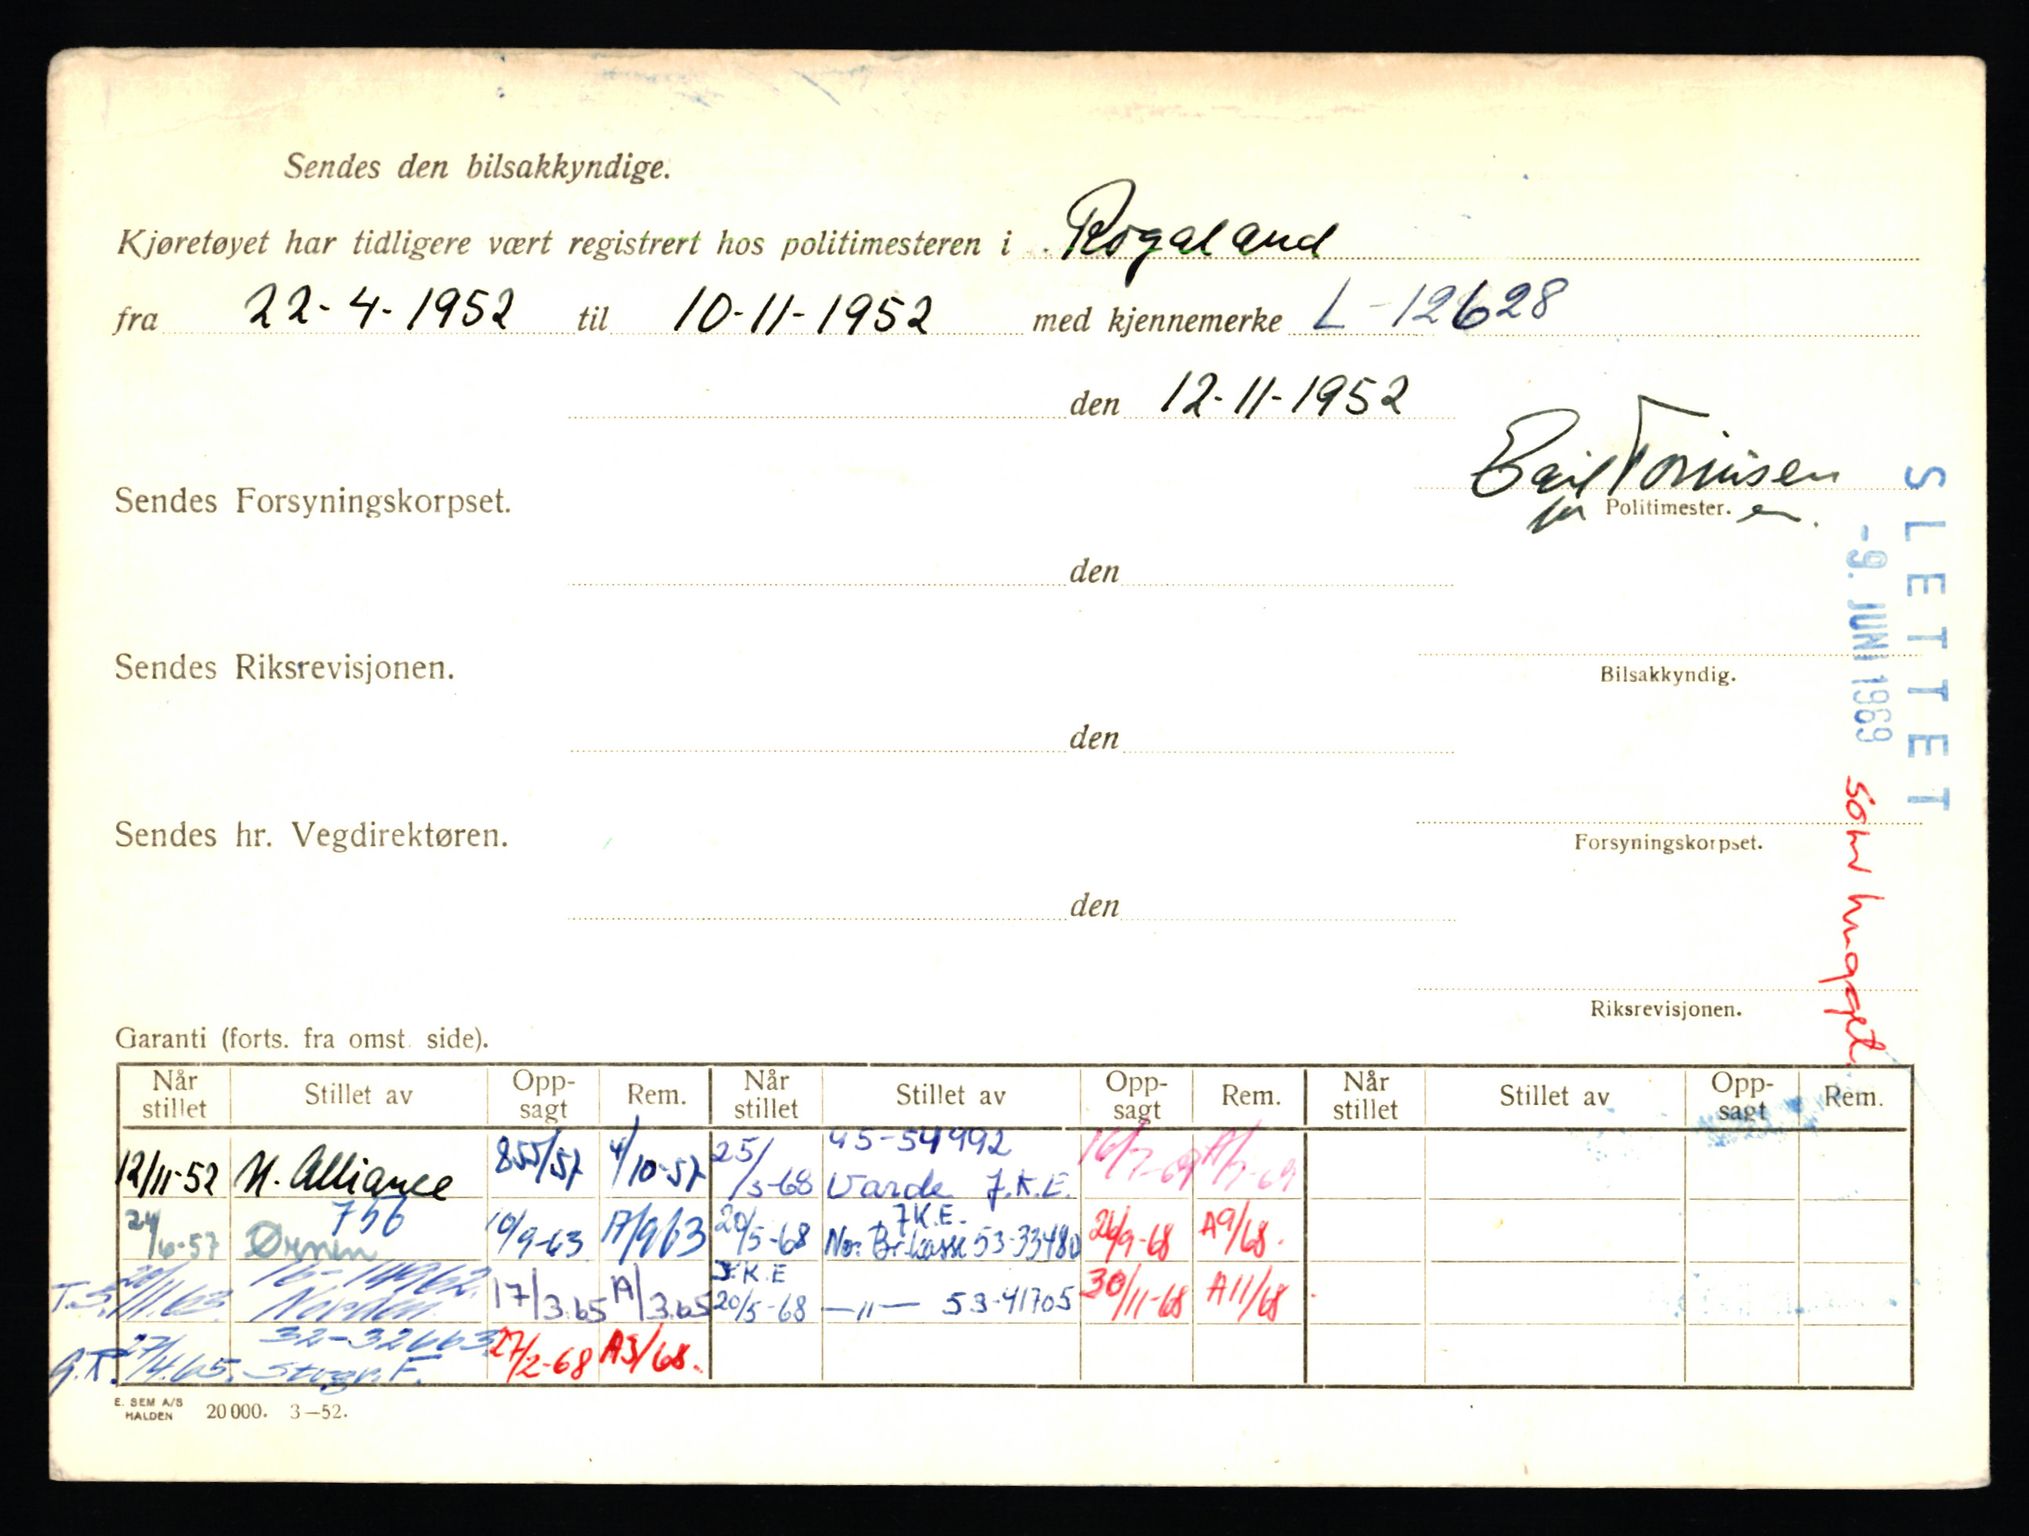 Sendes den bilsakkyndige.
Kjøretøyet har tidligere vært registrert hos politimesteren i Rogaland
fra 22-4-1952 til 10-11-1952 med kjennemerke L-12628
den 12-11-1952
Sendes Forsyningskorpset.
Politimester.
den
Sendes Riksrevisjonen.
Bilsakkyndig.
den
Sendes hr. Vegdirektøren.
Forsyningskorpset.
den
Riksrevisjonen.
SLETTET
-9. JUNI 1969
som hugget
Garanti (forts. fra omst. side).
Når stillet Stillet av Opp-sagt Rem. Når stillet Stillet av Opp-sagt Rem. Når stillet Stillet av Opp-sagt Rem.
12/11-52 N. Alliance 855/57 4/10-57 25/3-68 45-54992 Varde J.K.E. 16/7-69 A/7-69
24/6-57 756 Ørnen 10/9-63 A/9 63 20/5-68 J.K.E. Nor. Br.kasse 53-33480 26/9-68 A9/68.
T.S. 20/11.63. 16-14962. Norden 17/3.65 A/3.65 J.K.E 20/5-68 —"— 53-41705 30/11-68 A11/68
G.R. 27/4.65. 32-32663. Storgr. F. 27/2-68 A3/68.
E. SEM A/S
HALDEN 20 000. 3—52.